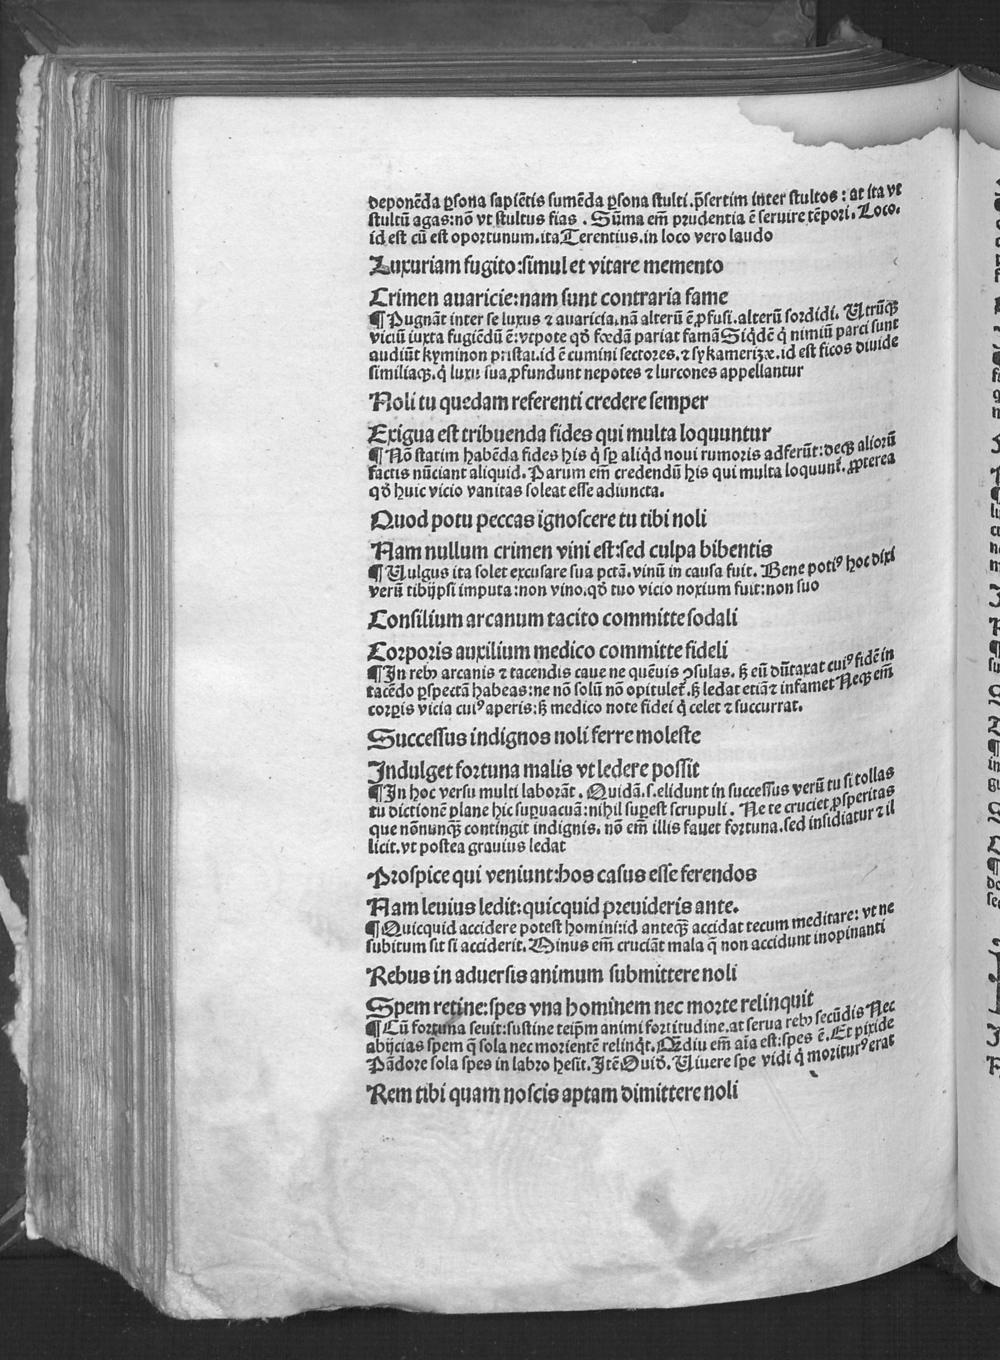 deponēda ꝑsona sapiētis sumēda ꝑsona stulti.p̄sertim inter stultos: at ita vt
stultū agas:nō vt stultus fias. Sūma em̄ prudentia ē seruire tēpori. Loco.
id est cū est oportunum.ita Terentius.in loco vero laudo
Luxuriam fugito:simul et vitare memento
Crimen auaricie:nam sunt contraria fame
¶ Pugnāt inter se luxus ⁊ auaricia.nā alterū ē ꝓfusi.alterū sordidi. Utrūqꝫ
viciū iuxta fugiēdū ē:vtpote qđ fœdā pariat famā Siq̇dē q̇ nimiū parci sunt
audiūt kyminon pristai.id ē cumini sectores.⁊ sykamerizæ.id est ficos diuide
similiaqꝫ.q̇ luxu sua ꝓfundunt nepotes ⁊ lurcones appellantur
Noli tu quedam referenti credere semper
Exigua est tribuenda fides qui multa loquuntur
¶ Nō statim habēda fides his q̇ sꝑ aliq̇d noui rumoris adferūt:deqꝫ aliorū
factis nūciant aliquid. Parum em̄ credendū his qui multa loquunt̄. ꝓpterea
qđ huic vicio vanitas soleat esse adiuncta.
Quod potu peccas ignoscere tu tibi noli
Nam nullum crimen vini est:sed culpa bibentis
¶ Uulgus ita solet excusare sua pctā.vinū in causa fuit. Bene potiꝰ hoc dixi
verū tibijpsi imputa:non vino.qđ tuo vicio noxium fuit:non suo
Consilium arcanum tacito committe sodali
Corporis auxilium medico committe fideli
¶ In rebꝰ arcanis ⁊ tacendis caue ne quēuis ꝯsulas. sꝫ eū dūtaxat cuiꝰ fidē in
tacēdo ꝑspectā habeas:ne nō solū nō opitulet̄.sꝫ ledat etiā ⁊ infamet Neqꝫ em̄
corꝑis vicia cuiꝰ aperis:sꝫ medico note fidei q̇ celet ⁊ succurrat.
Successus indignos noli ferre moleste
Indulget fortuna malis vt ledere possit
¶ In hoc versu multi laborāt. Quidā.s.elidunt in successus verū tu si tollas
tu dictionē plane hic suꝑuacuā:nihil suꝑest scrupuli. Ne te cruciet ꝓsperitas
que nōnunqꝫ contingit indignis. nō em̄ illis fauet fortuna.sed insidiatur ⁊ il
licit.vt postea grauius ledat
Prospice qui veniunt:hos casus esse ferendos
Nam leuius ledit:quicquid preuideris ante.
¶ Quicquid accidere potest homini:id anteqꝫ accidat tecum meditare: vt ne
subitum sit si acciderit. Minus em̄ cruciāt mala q̄ non accidunt inopinanti
Rebus in aduersis animum submittere noli
Spem retine:spes vna hominem nec morte relinquit
¶ Cū fortuna seuit:sustine teip̄m animi fortitudine.at serua rebꝰ secūdis Nec
abijcias spem q̄ sola nec morientē relinq̇t. Mediu em̄ aīa est:spes ē. Et pixide
Pādore sola spes in labro hesit. Itē Ouid̄. Uiuere spe vidi q̇ moriturꝰ erat
Rem tibi quam noscis aptam dimittere noli